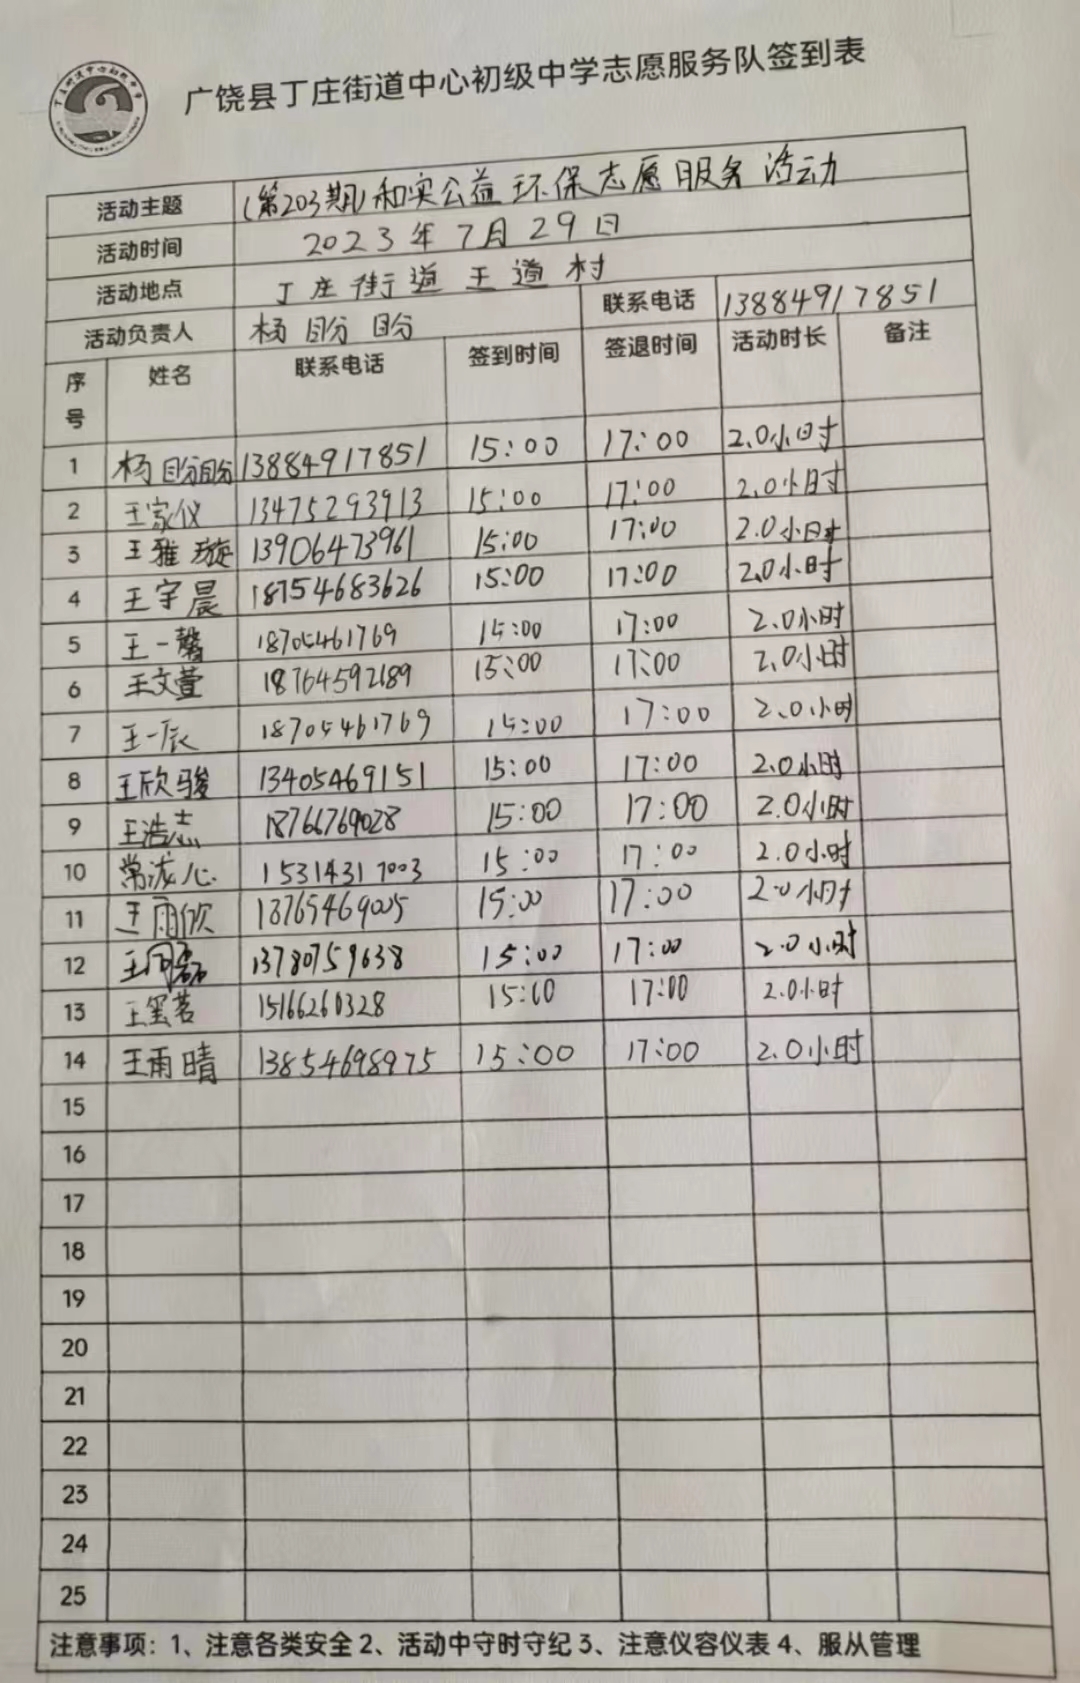 广饶县丁庄街道中心初级中学志愿服务队签到表
活动主题 (第203期)和实公益环保志愿服务活动
活动时间 2023年7月29日
活动地点 丁庄街道王道村
活动负责人 杨盼盼 联系电话 13884917851
序号 姓名 联系电话 签到时间 签退时间 活动时长 备注
1 杨盼盼 13884917851 15:00 17:00 2.0小时
2 王家仪 13475293913 15:00 17:00 2.0小时
3 王雅璇 13906473961 15:00 17:00 2.0小时
4 王宇晨 18754683626 15:00 17:00 2.0小时
5 王一馨 18705461769 15:00 17:00 2.0小时
6 王文萱 18764592189 15:00 17:00 2.0小时
7 王一辰 18705461769 15:00 17:00 2.0小时
8 王欣骏 13405469151 15:00 17:00 2.0小时
9 王浩志 18766769028 15:00 17:00 2.0小时
10 常泷心 15314317003 15:00 17:00 2.0小时
11 王雨欣 18765469005 15:00 17:00 2.0小时
12 13780759638 15:00 17:00 2.0小时
13 15166260328 15:00 17:00 2.0小时
14 王雨晴 13854698975 15:00 17:00 2.0小时
15
16
17
18
19
20
21
22
23
24
25
注意事项：1、注意各类安全 2、活动中守时守纪 3、注意仪容仪表 4、服从管理